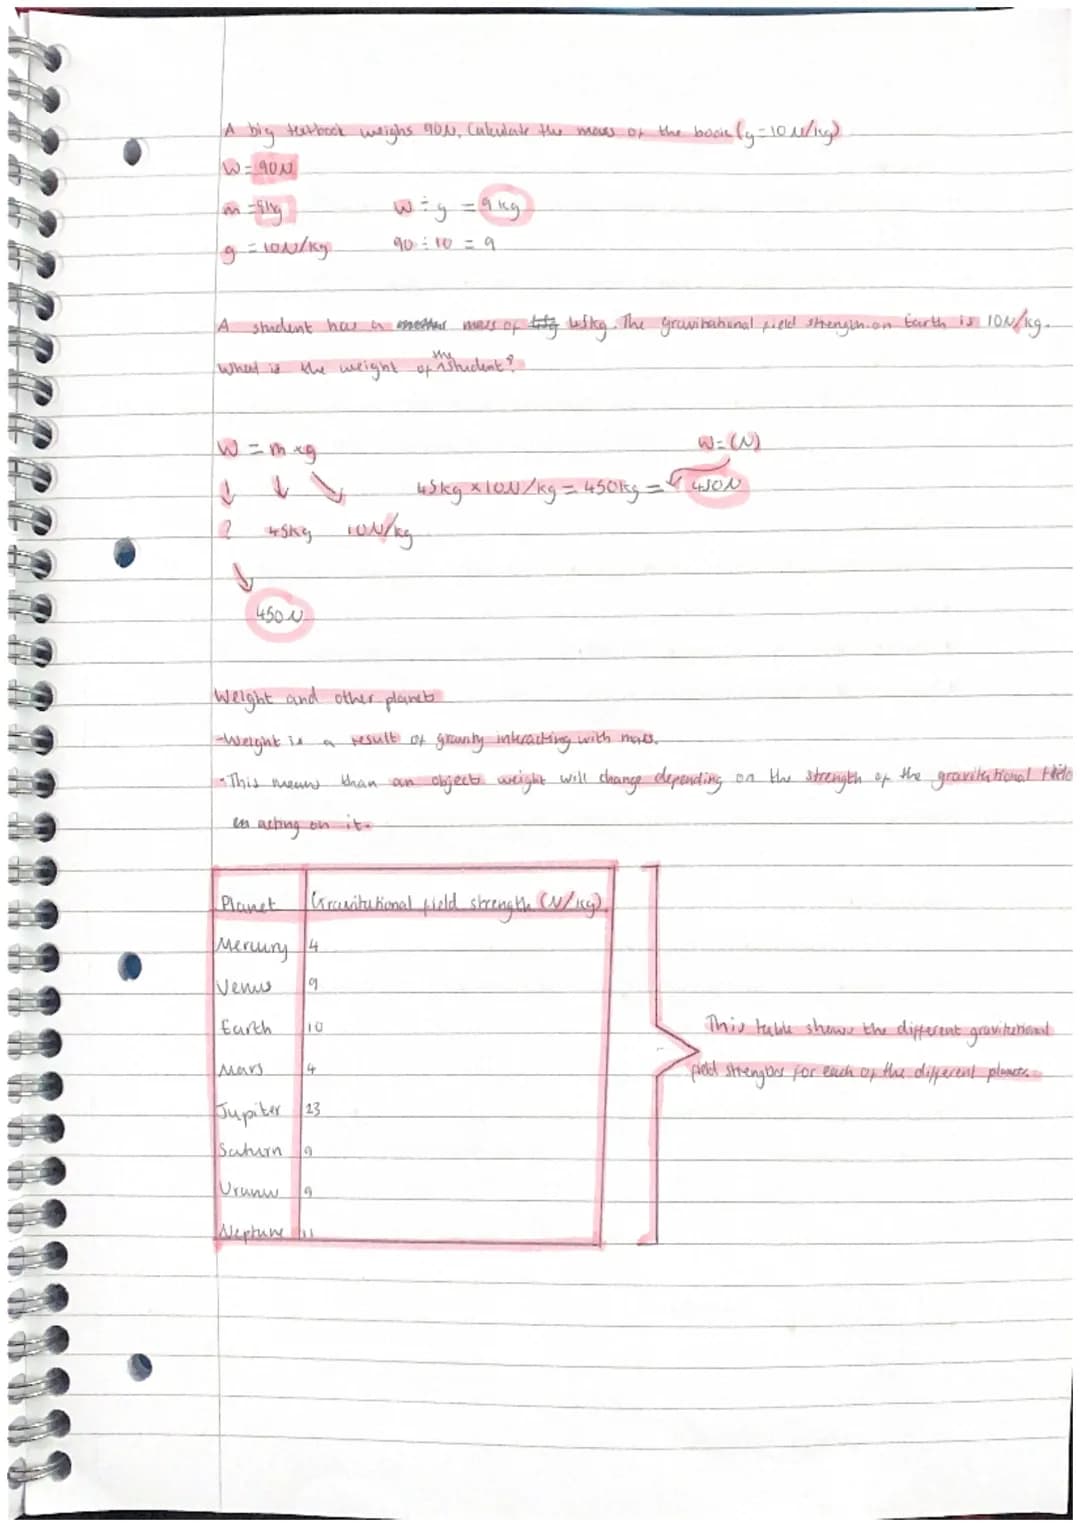 A big textbook weighs 90N. Calculate the mass of the book (g=10 N/kg)
W = 90N
m = 9kg W ÷ g = 9 kg
g = 10N/kg 90 ÷ 10 = 9
A student has a mass of 45kg. The gravitational field strength on Earth is 10N/kg.
What is the weight of the student?
W = m × g W = (N)
45kg × 10N/kg = 450kg = 450N
? 45kg 10N/kg
450N
Weight and other planets
-Weight is a result of gravity interacting with mass.
-This means than an objects weight will change depending on the strength of the gravitational field
acting on it.
Planet Gravitational field strength (N/kg)
Mercury 4
Venus 9
Earth 10
Mars 4
Jupiter 23
Saturn 9
Uranus 9
Neptune 11
This table shows the different gravitational
field strengths for each of the different planets.